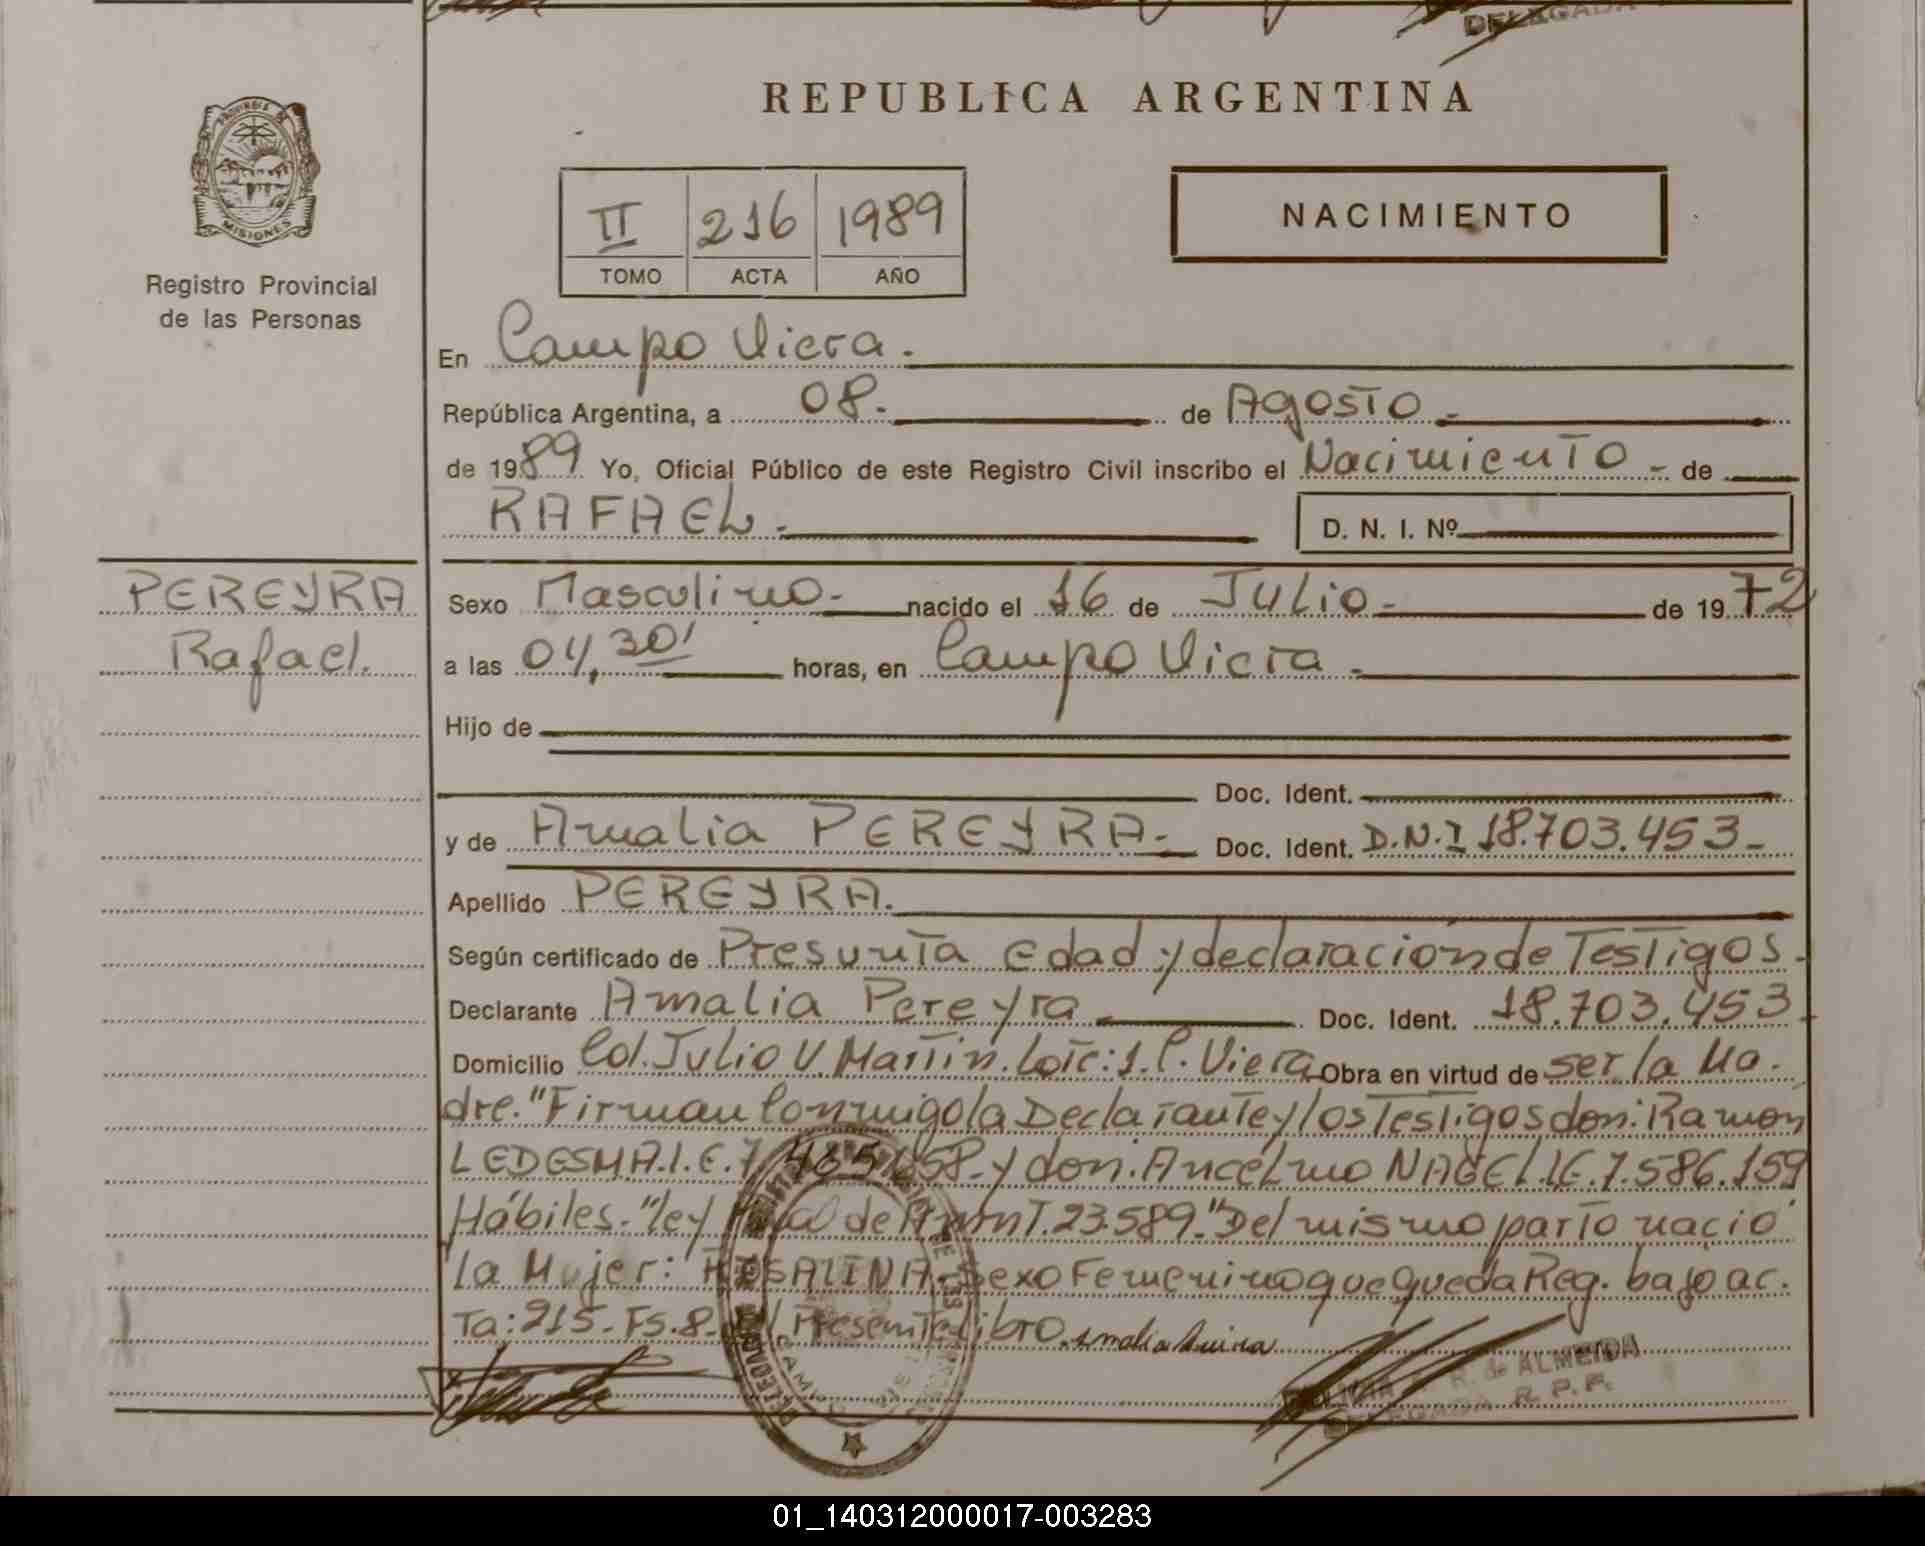 DELEGADA
REPUBLICA ARGENTINA
PROVINCIA DE
MISIONES
Registro Provincial
de las Personas
II 216 1989
TOMO ACTA AÑO
NACIMIENTO
En Campo Viera.
República Argentina, a 08. de Agosto.
de 1989 Yo, Oficial Público de este Registro Civil inscribo el Nacimiento - de
RAFAEL.- D. N. I. Nº
PEREYRA
Rafael.
Sexo Masculino.- nacido el 16 de Julio.- de 1972
a las 04,30' horas, en Campo Viera.-
Hijo de
Doc. Ident.
y de Amalia PEREYRA.- Doc. Ident. D.N.I 18.703.453-
Apellido PEREYRA.
Según certificado de Presunta edad y declaración de Testigos.-
Declarante Amalia Pereyra Doc. Ident. 18.703.453-
Domicilio Col. Julio U. Martin. Lote: 1. C. Viera Obra en virtud de ser la Ma.
dre. "Firman Conmigo la Declarante y los Testigos don: Ramon
LEDESMA. I.E. 7.485.658- y don. Ancelmo NAGEL. I.E. 7.586.159
Hábiles.- "ley de Amnt. 23.589." Del mismo parto nacio
la Mujer: ROSALINA. Sexo Femenino que queda Reg. bajo ac.
Ta: 215- Fs. 8- Presente libro. Amalia
R. de ALMEIDA
DELEGADA R. P. P.
01_140312000017-003283